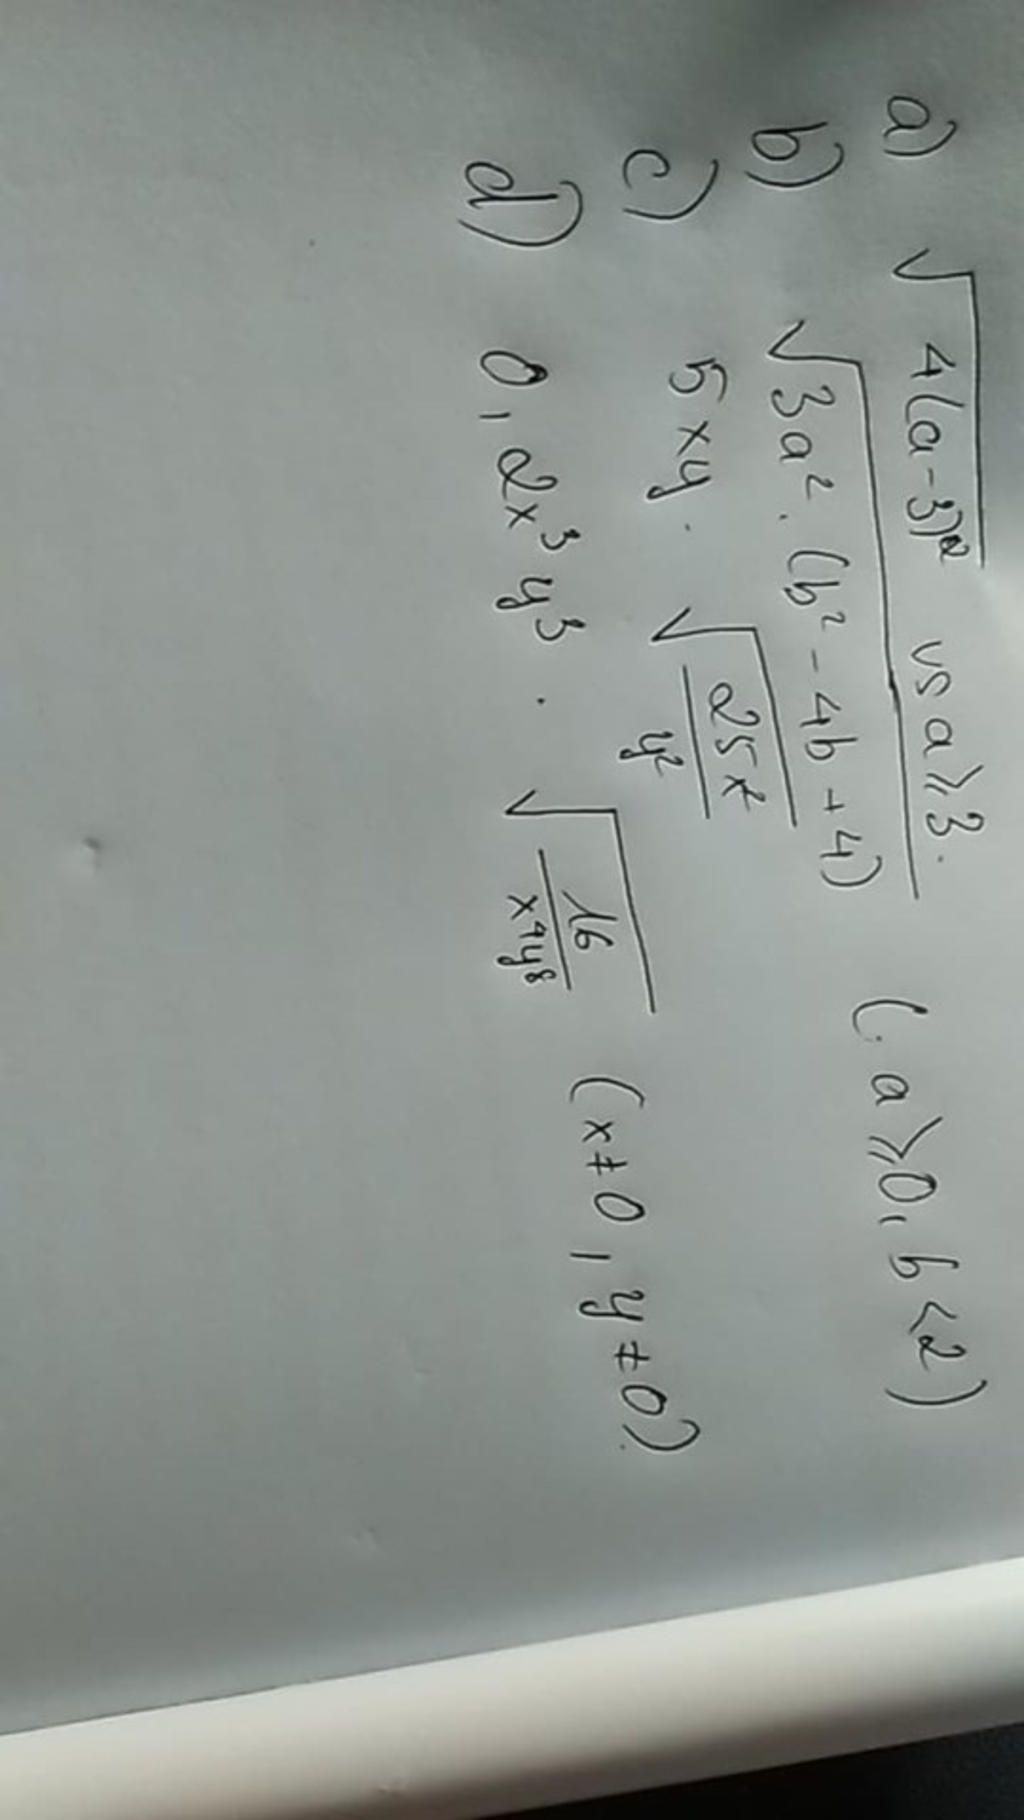 a) √4(a-3)² vs a ⩾ 3.
b) √3a². (b² - 4b + 4) (. a ⩾ 0, b < 2)
c) 5xy. √25x²/y²
d) 0,2x³y³ . √16/x⁴y⁸ (x ≠ 0, y ≠ 0).